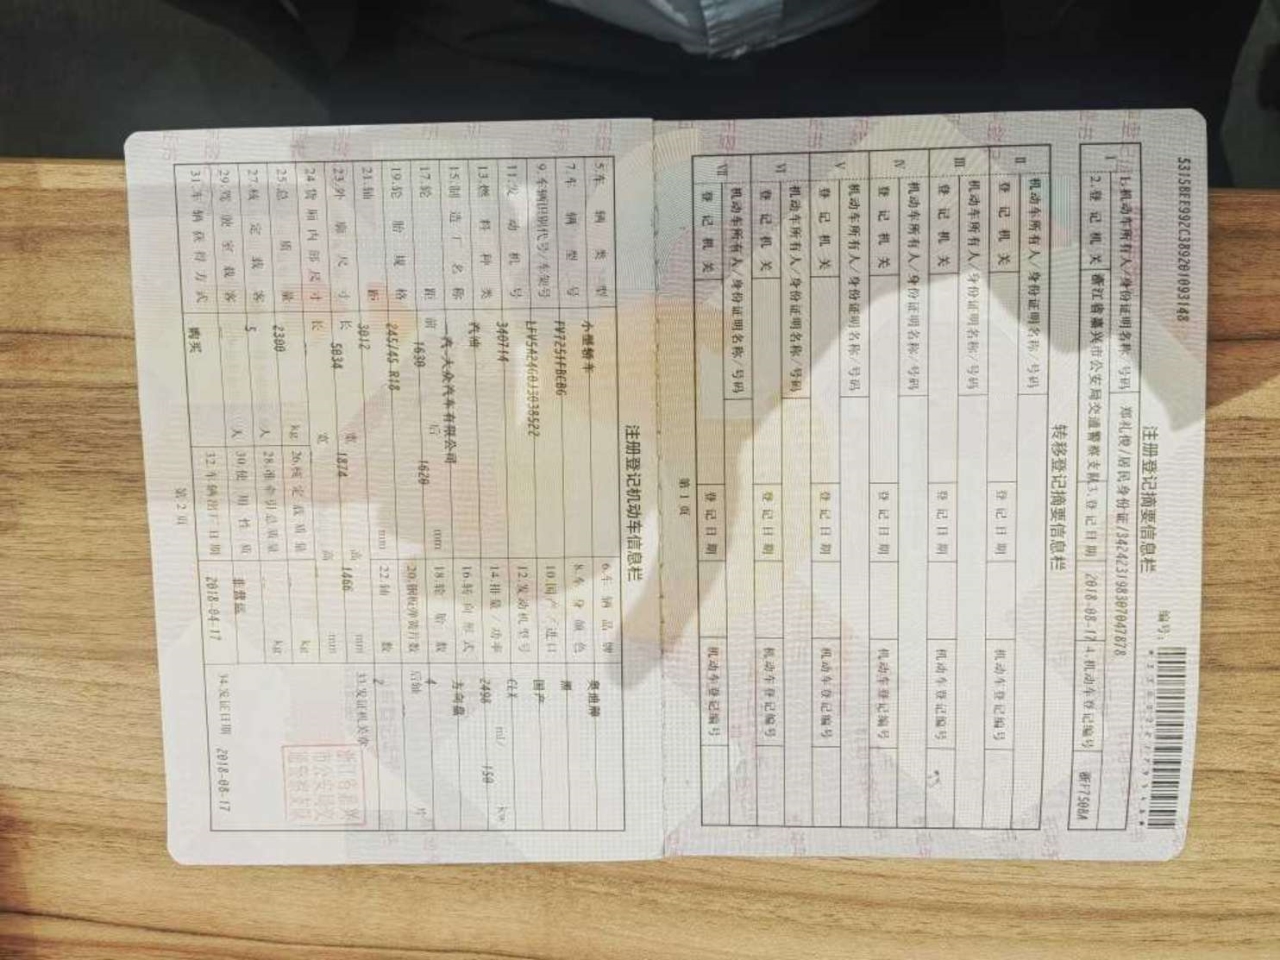 5315BEE992C3B9201093148
注册登记摘要信息栏
编号:
I
1.机动车所有人/身份证明名称/号码 郑礼俊/居民身份证/342423198307047878
2.登记机关 浙江省嘉兴市公安局交通警察支队 3.登记日期 2018-08-17 4.机动车登记编号 浙F7508A
转移登记摘要信息栏
II 机动车所有人/身份证明名称/号码
登记机关 登记日期 机动车登记编号
III 机动车所有人/身份证明名称/号码
登记机关 登记日期 机动车登记编号
IV 机动车所有人/身份证明名称/号码
登记机关 登记日期 机动车登记编号
V 机动车所有人/身份证明名称/号码
登记机关 登记日期 机动车登记编号
VI 机动车所有人/身份证明名称/号码
登记机关 登记日期 机动车登记编号
VII 机动车所有人/身份证明名称/号码
登记机关 登记日期 机动车登记编号
第1页
注册登记机动车信息栏
5.车辆类型 小型轿车 6.车辆品牌 奥迪牌
7.车辆型号 FV7251FBCBG 8.车身颜色 黑
9.车辆识别代号/车架号 LFV5A24G0J3038522 10.国产/进口 国产
11.发动机号 340714 12.发动机型号 CLX
13.燃料种类 汽油 14.排量/功率 2498 ml/ 150 kw
15.制造厂名称 一汽-大众汽车有限公司 16.转向形式 方向盘
17.轮距 前 1630 后 1620 mm 18.轮胎数 4
19.轮胎规格 245/45 R18 20.钢板弹簧片数 后轴 片
21.轴距 3012 mm 22.轴数 2
23.外廓尺寸 长 5034 宽 1874 高 1466 mm 33.发证机关章
24.货厢内部尺寸 长 宽 高 mm
25.总质量 2300 kg 26.核定载质量 kg
27.核定载客 5 人 28.准牵引总质量 kg
29.驾驶室载客 人 30.使用性质 非营运
31.车辆获得方式 购买 32.车辆出厂日期 2018-04-17 34.发证日期 2018-08-17
第2页